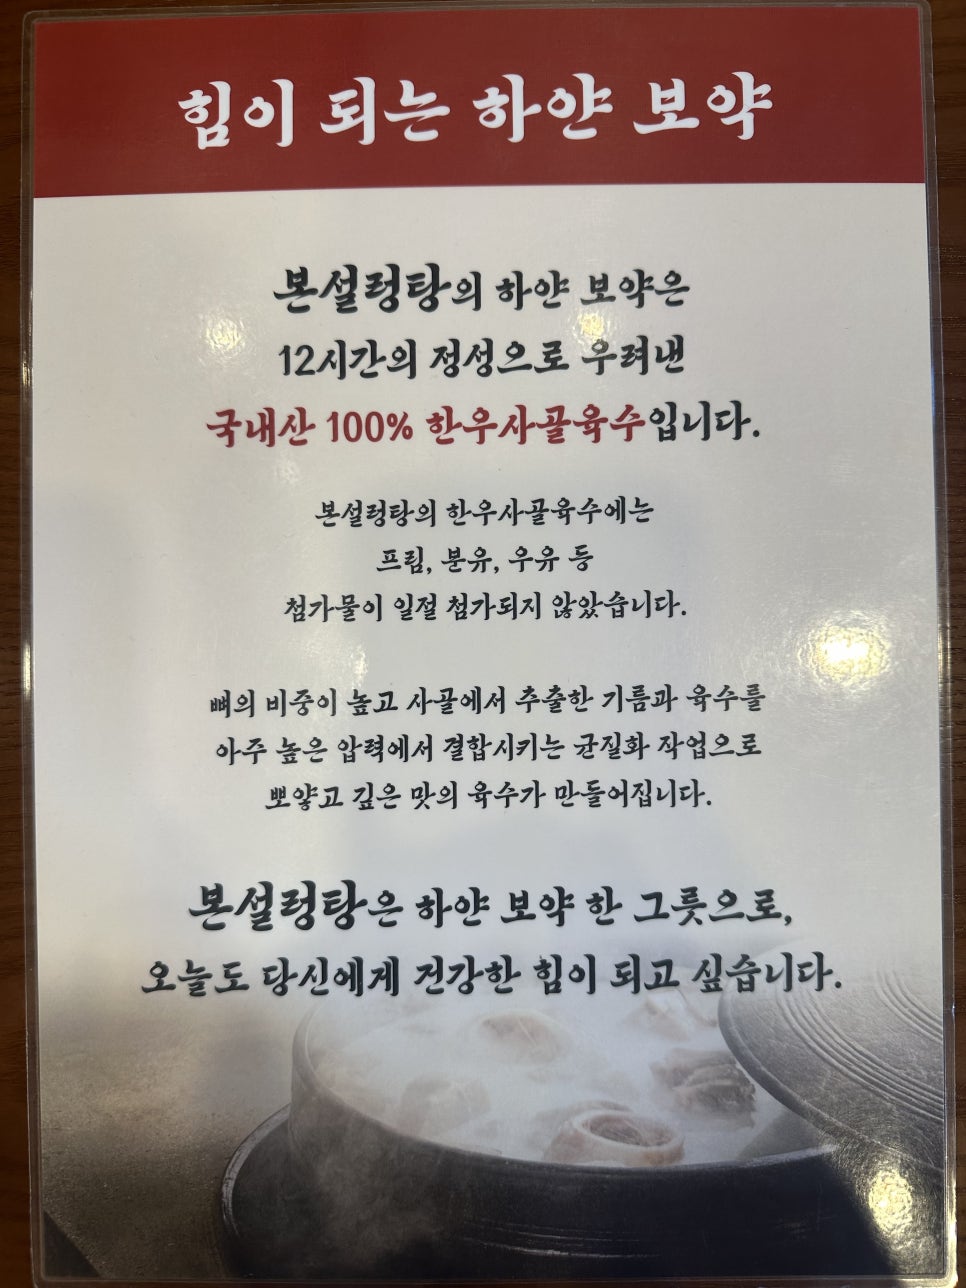 힘이 되는 하얀 보약
본설렁탕의 하얀 보약은
12시간의 정성으로 우려낸
국내산 100% 한우사골육수입니다.
본설렁탕의 한우사골육수에는
프림, 분유, 우유 등
첨가물이 일절 첨가되지 않았습니다.
뼈의 비중이 높고 사골에서 추출한 기름과 육수를
아주 높은 압력에서 결합시키는 균질화 작업으로
뽀얗고 깊은 맛의 육수가 만들어집니다.
본설렁탕은 하얀 보약 한 그릇으로,
오늘도 당신에게 건강한 힘이 되고 싶습니다.